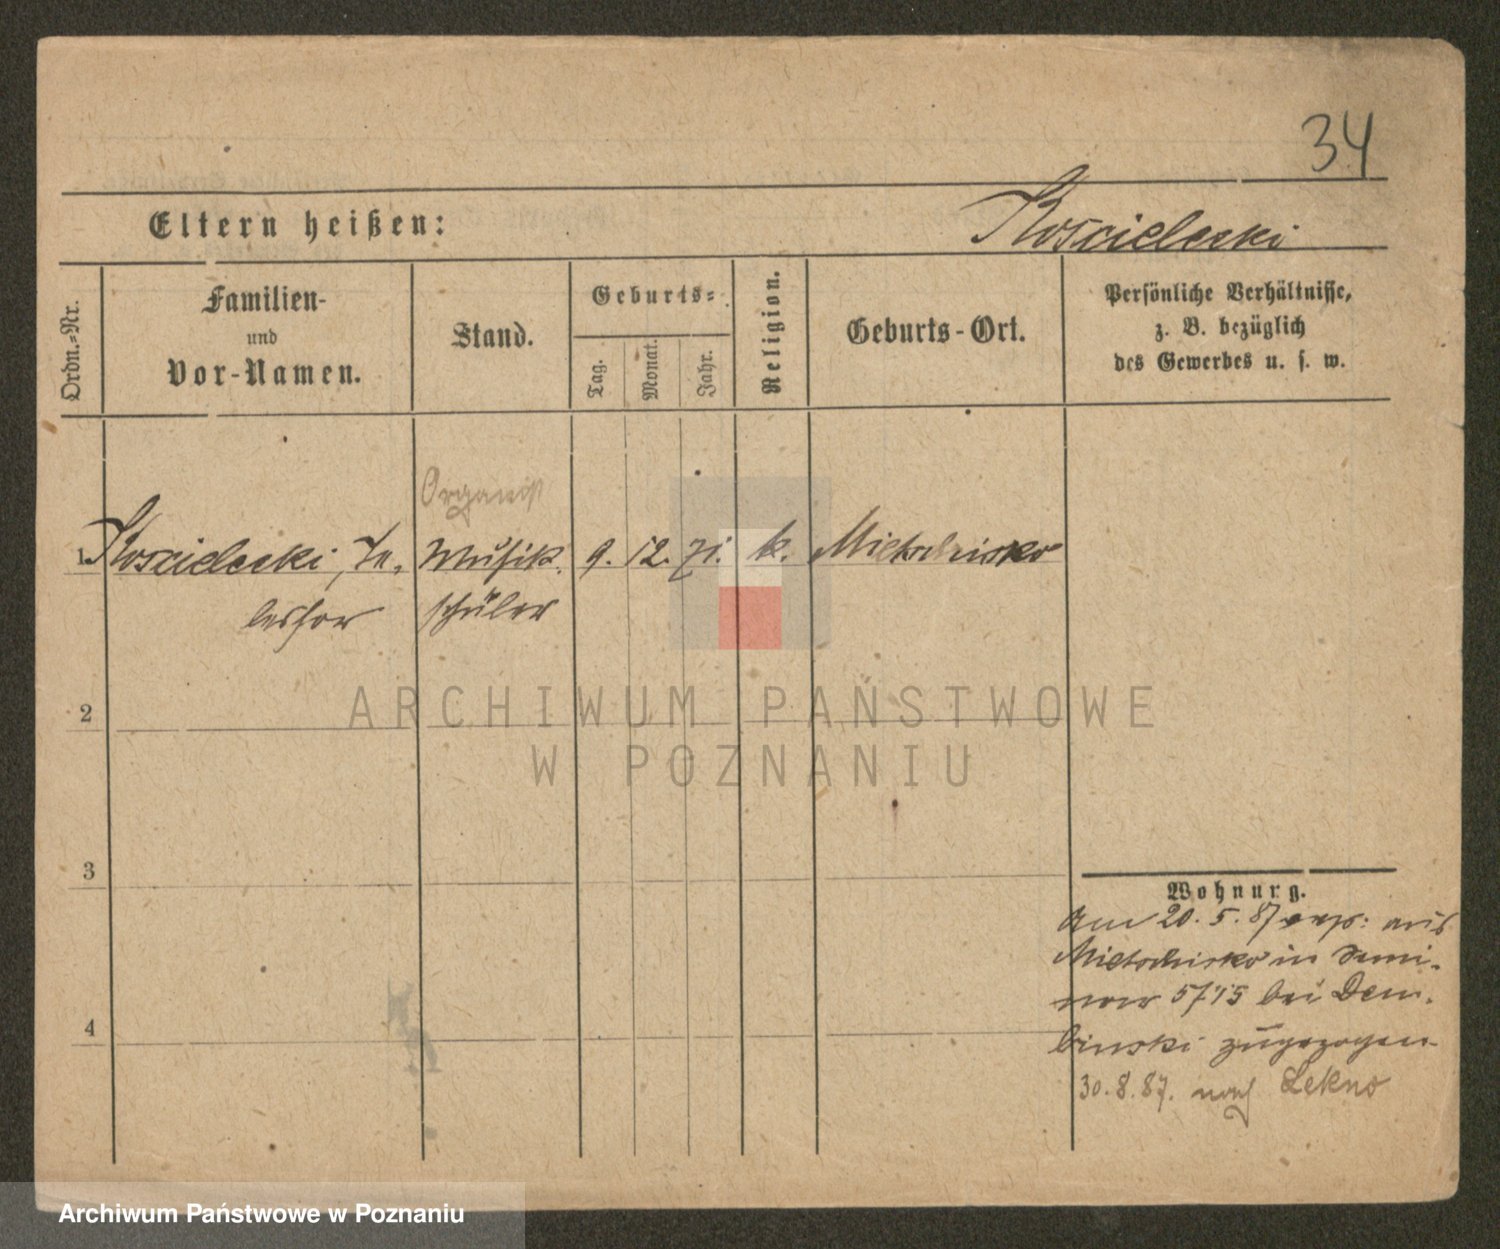 34
Eltern heißen:
Koscielecki
Ordn.-Nr.
Familien-
und
Vor-Namen.
Stand.
Geburts-
Tag.
Monat.
Jahr.
Religion.
Geburts-Ort.
Persönliche Verhältnisse,
z. B. bezüglich
des Gewerbes u. s. w.
Organist
1 Koscielecki, Te-
lesfor
Musik-
schüler
9. 12. 71. k. Mietschisko
2
ARCHIWUM PAŃSTWOWE
W POZNANIU
3
Wohnurg.
Am 20. 5. 87 aus
Mietschisko in
5715 bei Dem-
binski zugezogen
4
30. 8. 87. nach Lekno
Archiwum Państwowe w Poznaniu